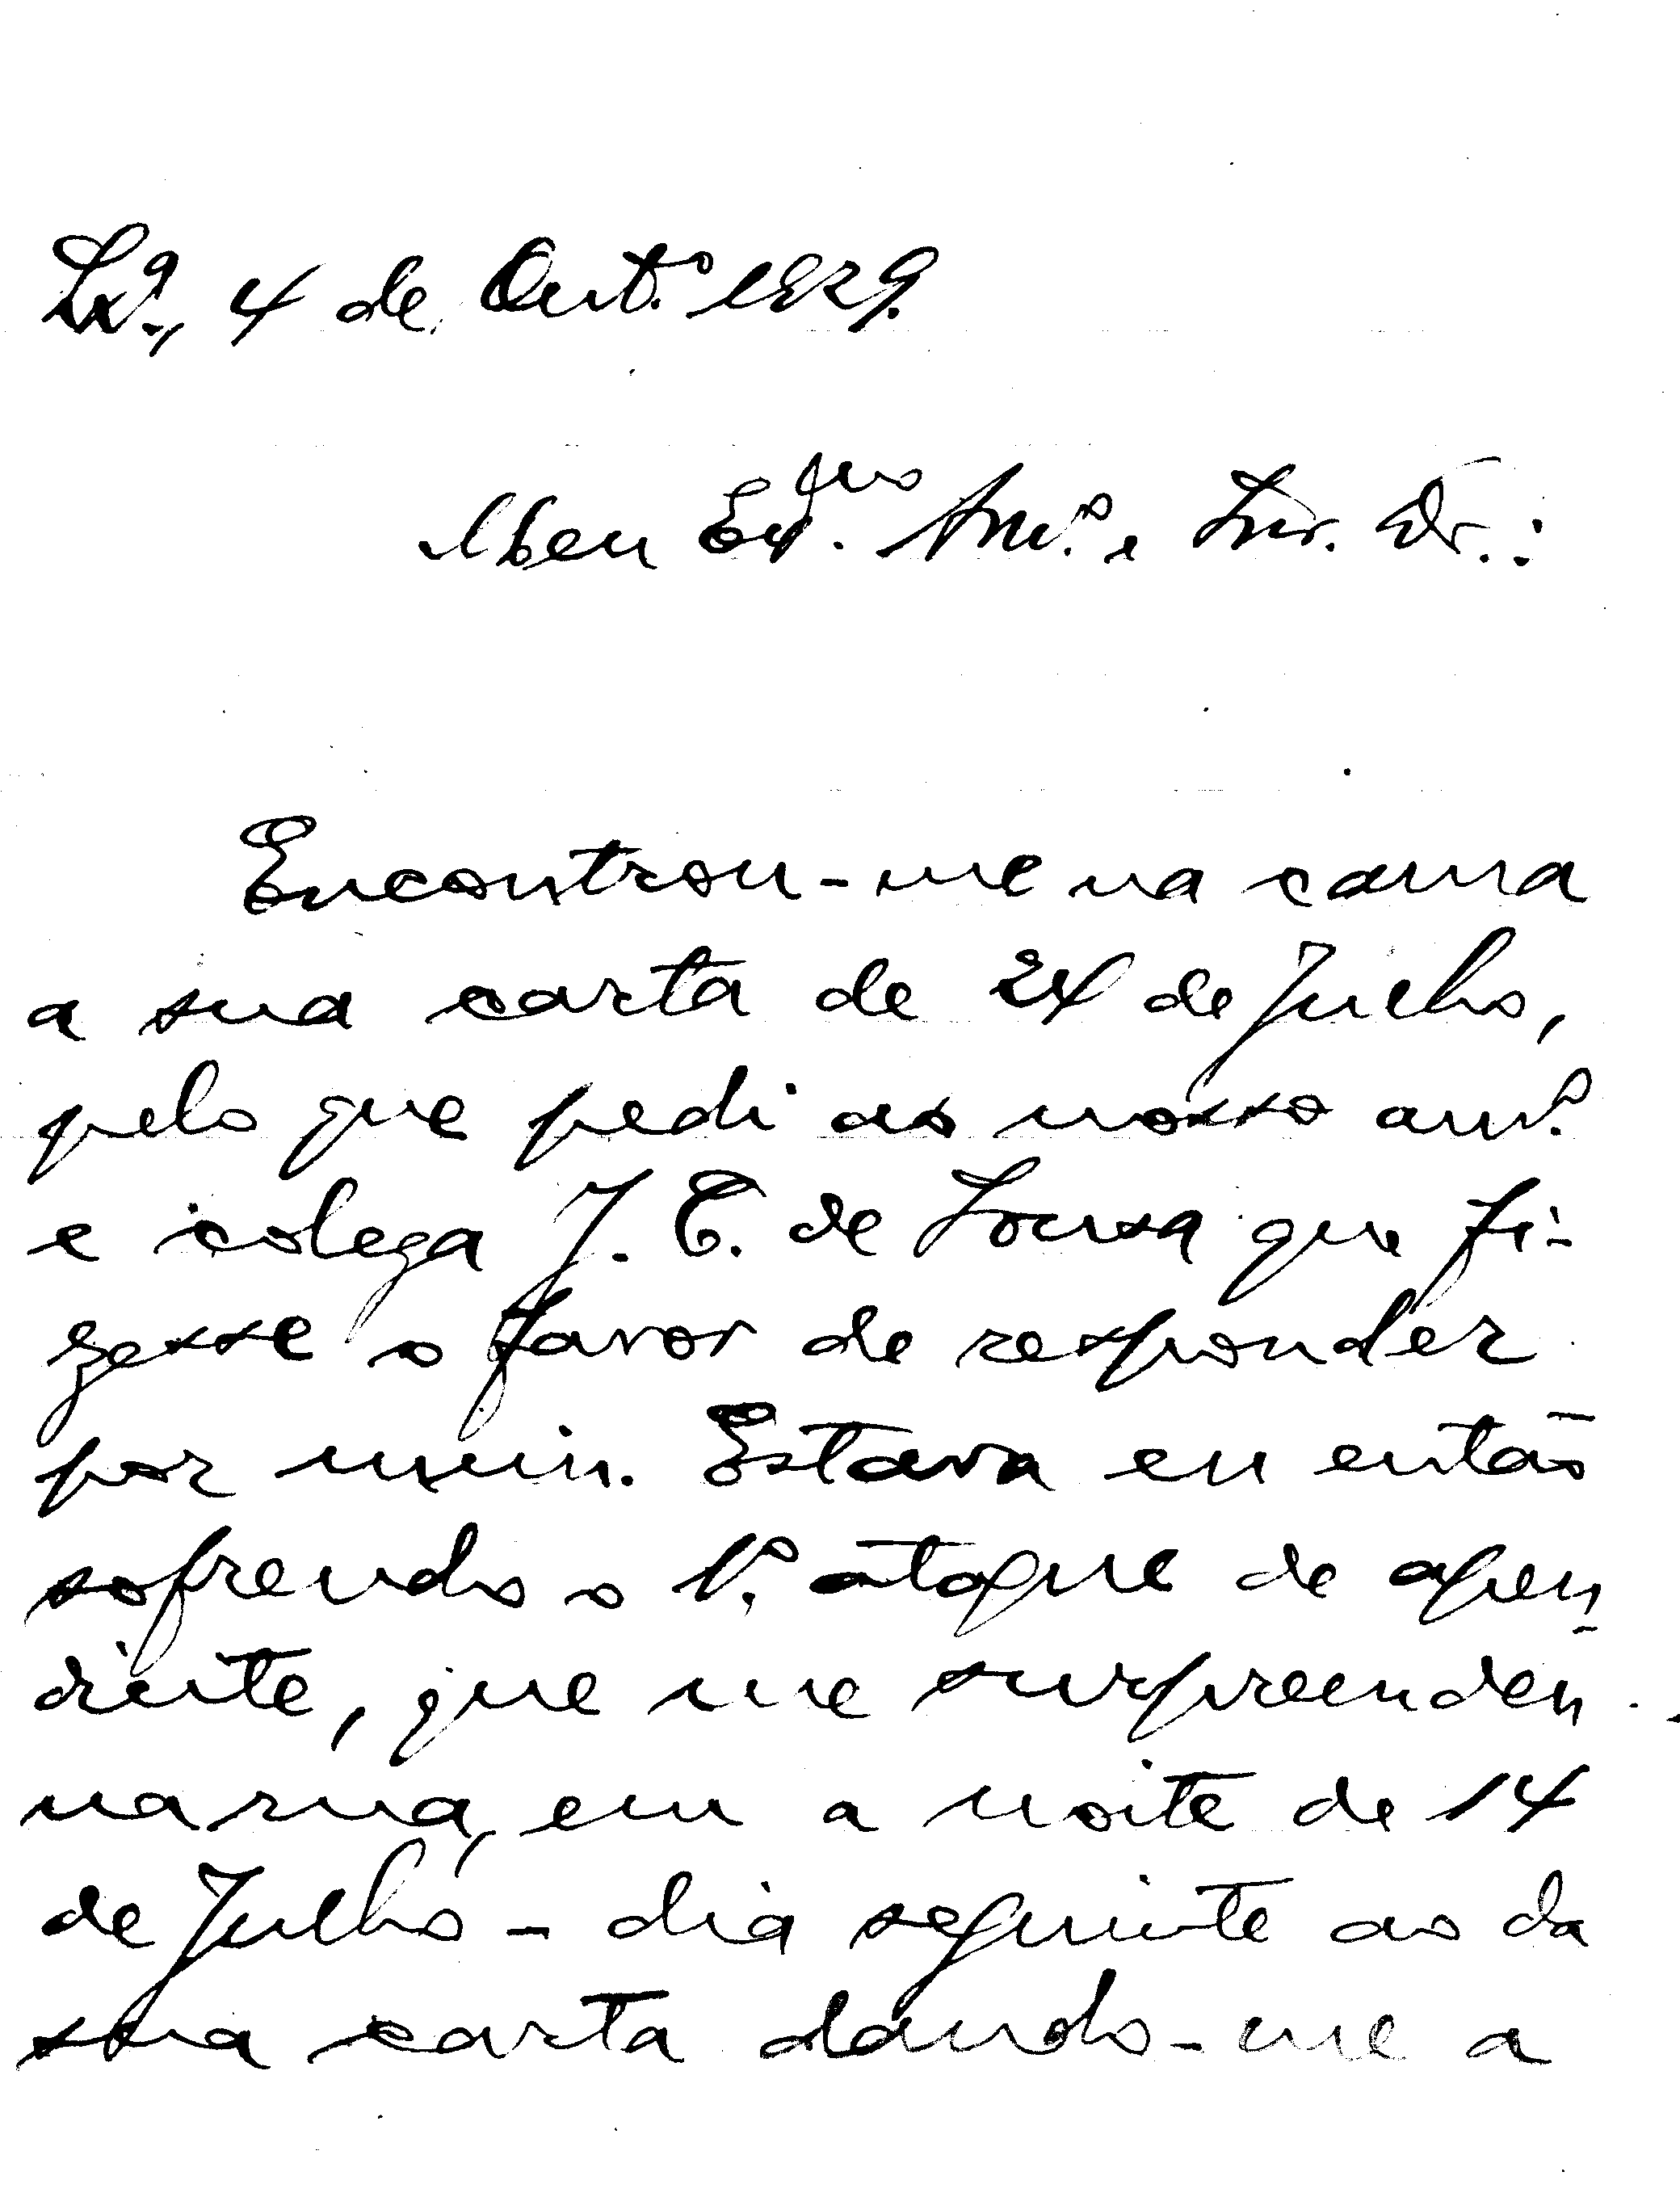 Lx.ª, 4 de Out.º 1929.
Meu Ex.mo Am.º e Snr. Dr.:
Encontrou-me na cama
a sua carta de 24 de Julho,
pelo que pedi ao nosso am.º
e colega J. C. de Sousa que fi-
zesse o favor de responder
por mim. Estava eu então
sofrendo o 1.º ataque de apen-
dicite, que me surpreendeu
na rua, em a noite de 14
de Julho - dia seguinte ao da
sua carta dando-me a